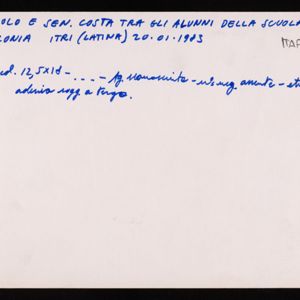 OLO E SEN. COSTA TRA GLI ALUNNI DELLA SCUOLA
LONIA ITRI (LATINA) 20.01.1983
ITAP
col. 12,5x18 - . . . . - manoscritta - neg. assente -
adesiva sogg. a tergo.